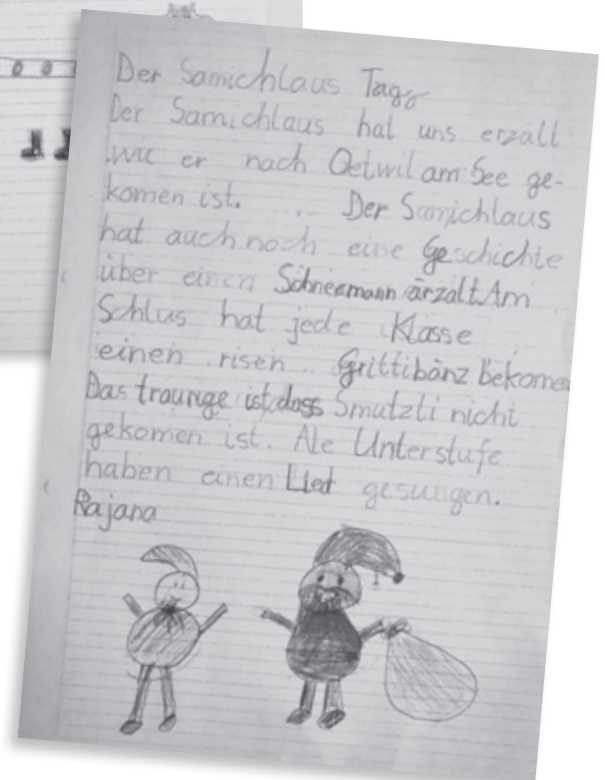 Der Samichlaus Tag
Der Samichlaus hat uns erzält
wie er nach Oetwil am See ge-
komen ist. Der Samichlaus
hat auch noch eine Geschichte
über einen Schneemann ärzält. Am
Schlus hat jede Klasse
einen risen Grittibänz bekomen
Das traurige ist dass Smutzli nicht
gekomen ist. Ale Unterstufe
haben einen Lied gesungen.
Rajana